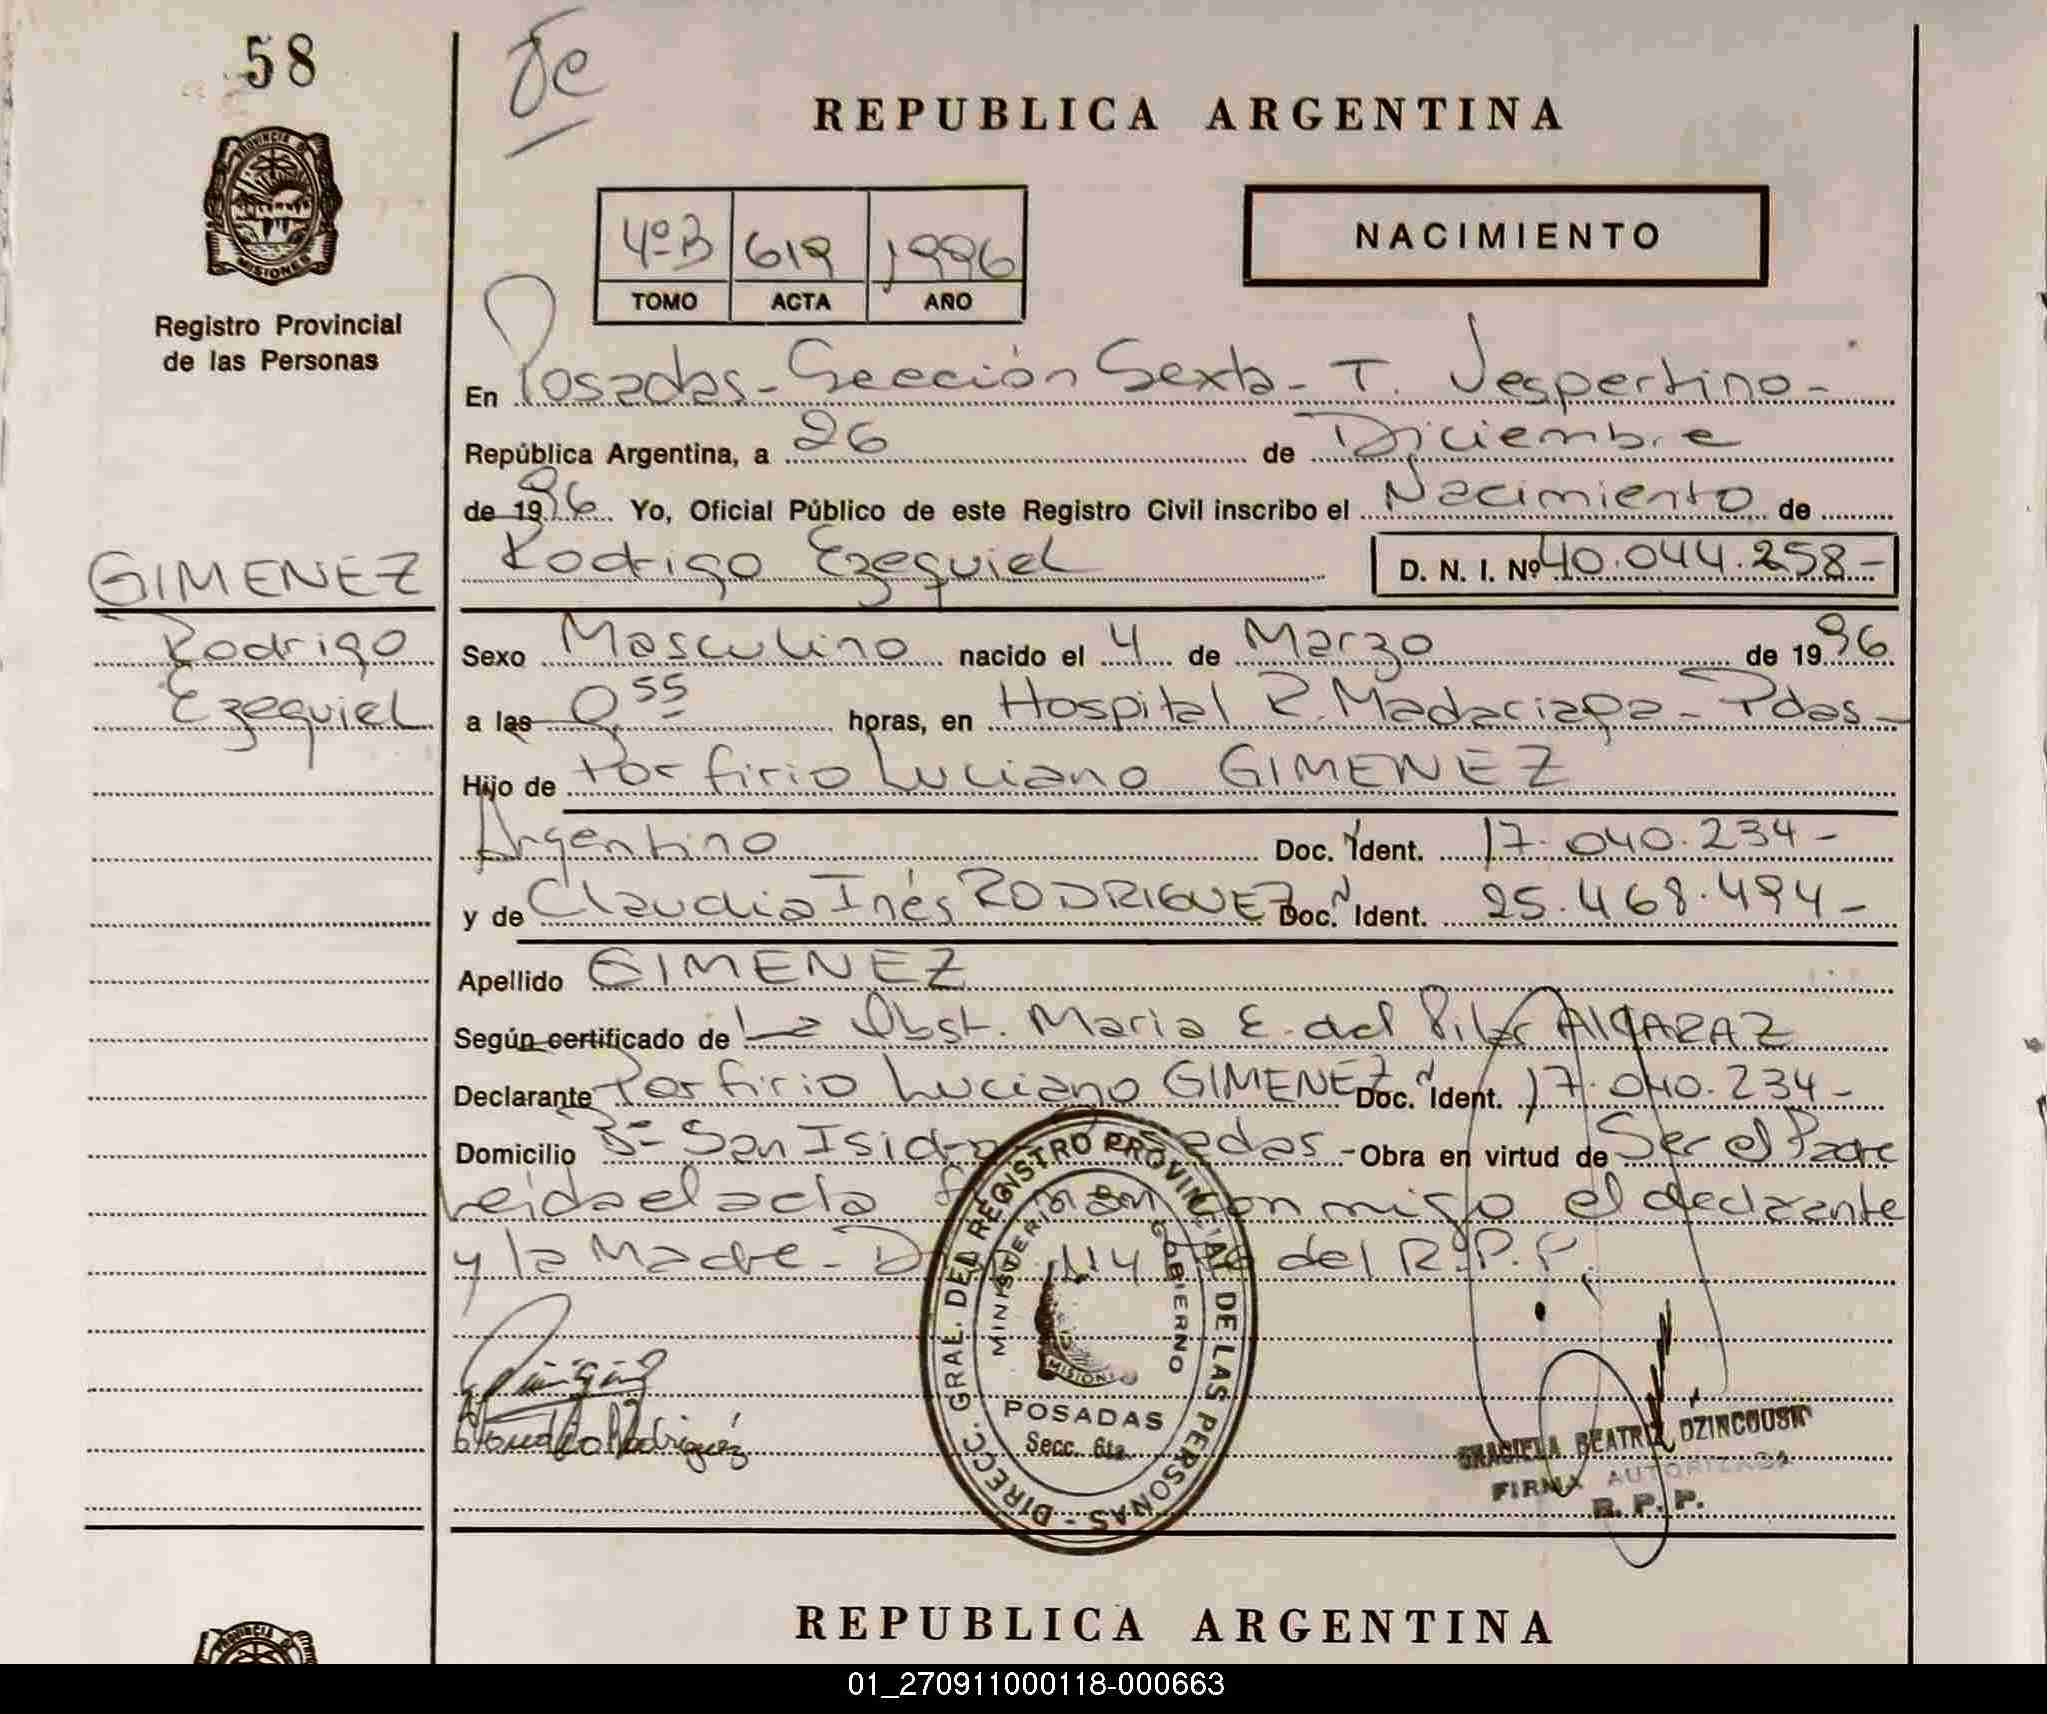 58
REPUBLICA ARGENTINA
NACIMIENTO
4º B 619 1996
TOMO ACTA AÑO
PROVINCIA D MISIONES
Registro Provincial
de las Personas
En Posadas - Sección Sexta - T. Vespertino -
República Argentina, a 26 de Diciembre
de 1996 Yo, Oficial Público de este Registro Civil inscribo el Nacimiento de
Rodrigo Ezequiel D. N. I. Nº 40.044.258 -
GIMENEZ
Rodrigo
Ezequiel
Sexo Masculino nacido el 4 de Marzo de 1996
a las 0 55 horas, en Hospital R. Madariaga - Pdas -
Hijo de Porfirio Luciano GIMENEZ
Argentino Doc. Ident. 17.040.234 -
y de Claudia Inés RODRIGUEZ Doc. Ident. 25.468.494 -
Apellido GIMENEZ
Según certificado de La Obst. Maria E. del Pilar ALCARAZ
Declarante Porfirio Luciano GIMENEZ Doc. Ident. 17.040.234 -
Domicilio Bº San Isidro Posadas - Obra en virtud de Ser el Padre
Leida el acta firman conmigo el declarante
y la Madre - 114 del R.P.P.
DIRECC. GRAL. DEL REGISTRO PROVINCIAL DE LAS PERSONAS -
MINISTERIO DE GOBIERNO
MISIONES
POSADAS
Secc. 6ta.
Rodriguez
GRACIELA BEATRIZ DZINCOUSKI
FIRMA AUTORIZADA
R. P. P.
REPUBLICA ARGENTINA
PROVINCIA D
01_270911000118-000663